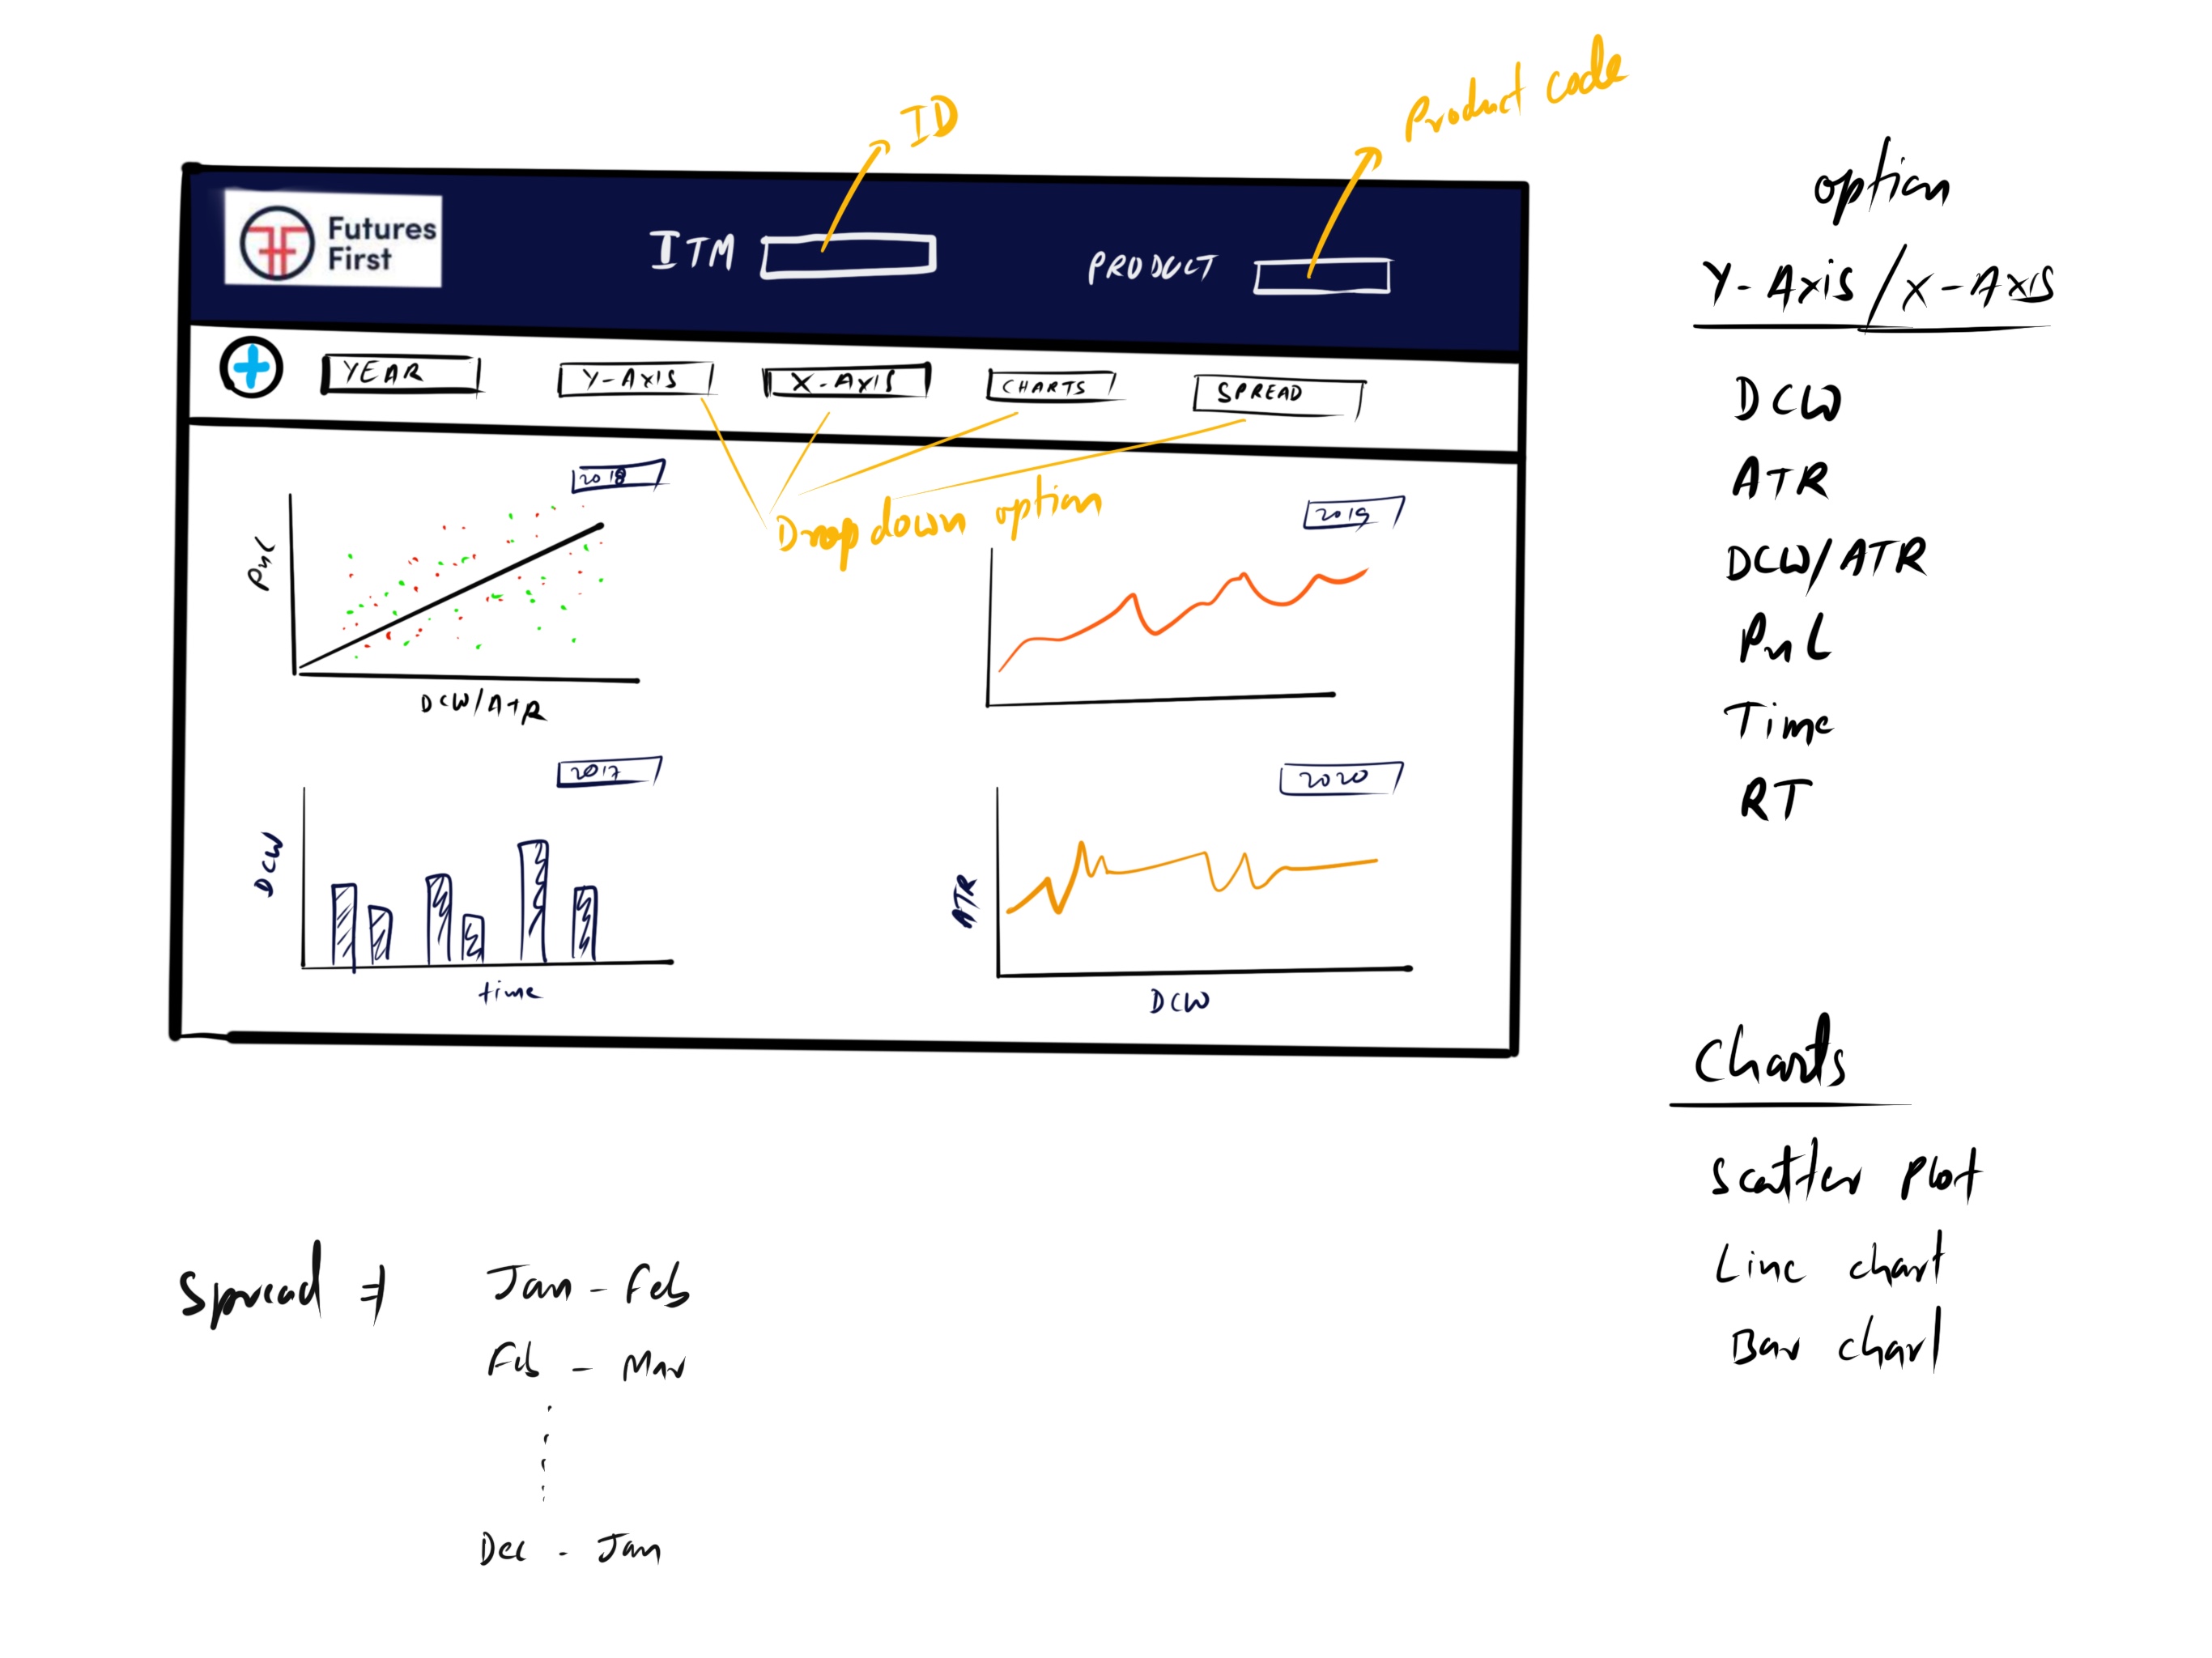 ID
Product code
Futures
First
ITM
PRODUCT
YEAR
Y-AXIS
X-AXIS
CHARTS
SPREAD
2018
Drop down option
2019
PnL
DCW/ATR
2017
2020
DCW
time
ATR
DCW
option
Y-Axis/X-Axis
DCW
ATR
DCW/ATR
PnL
Time
RT
Charts
Scatter Plot
Line chart
Bar chart
Spread ⇒ Jan - Feb
Feb - Mar
Dec - Jan